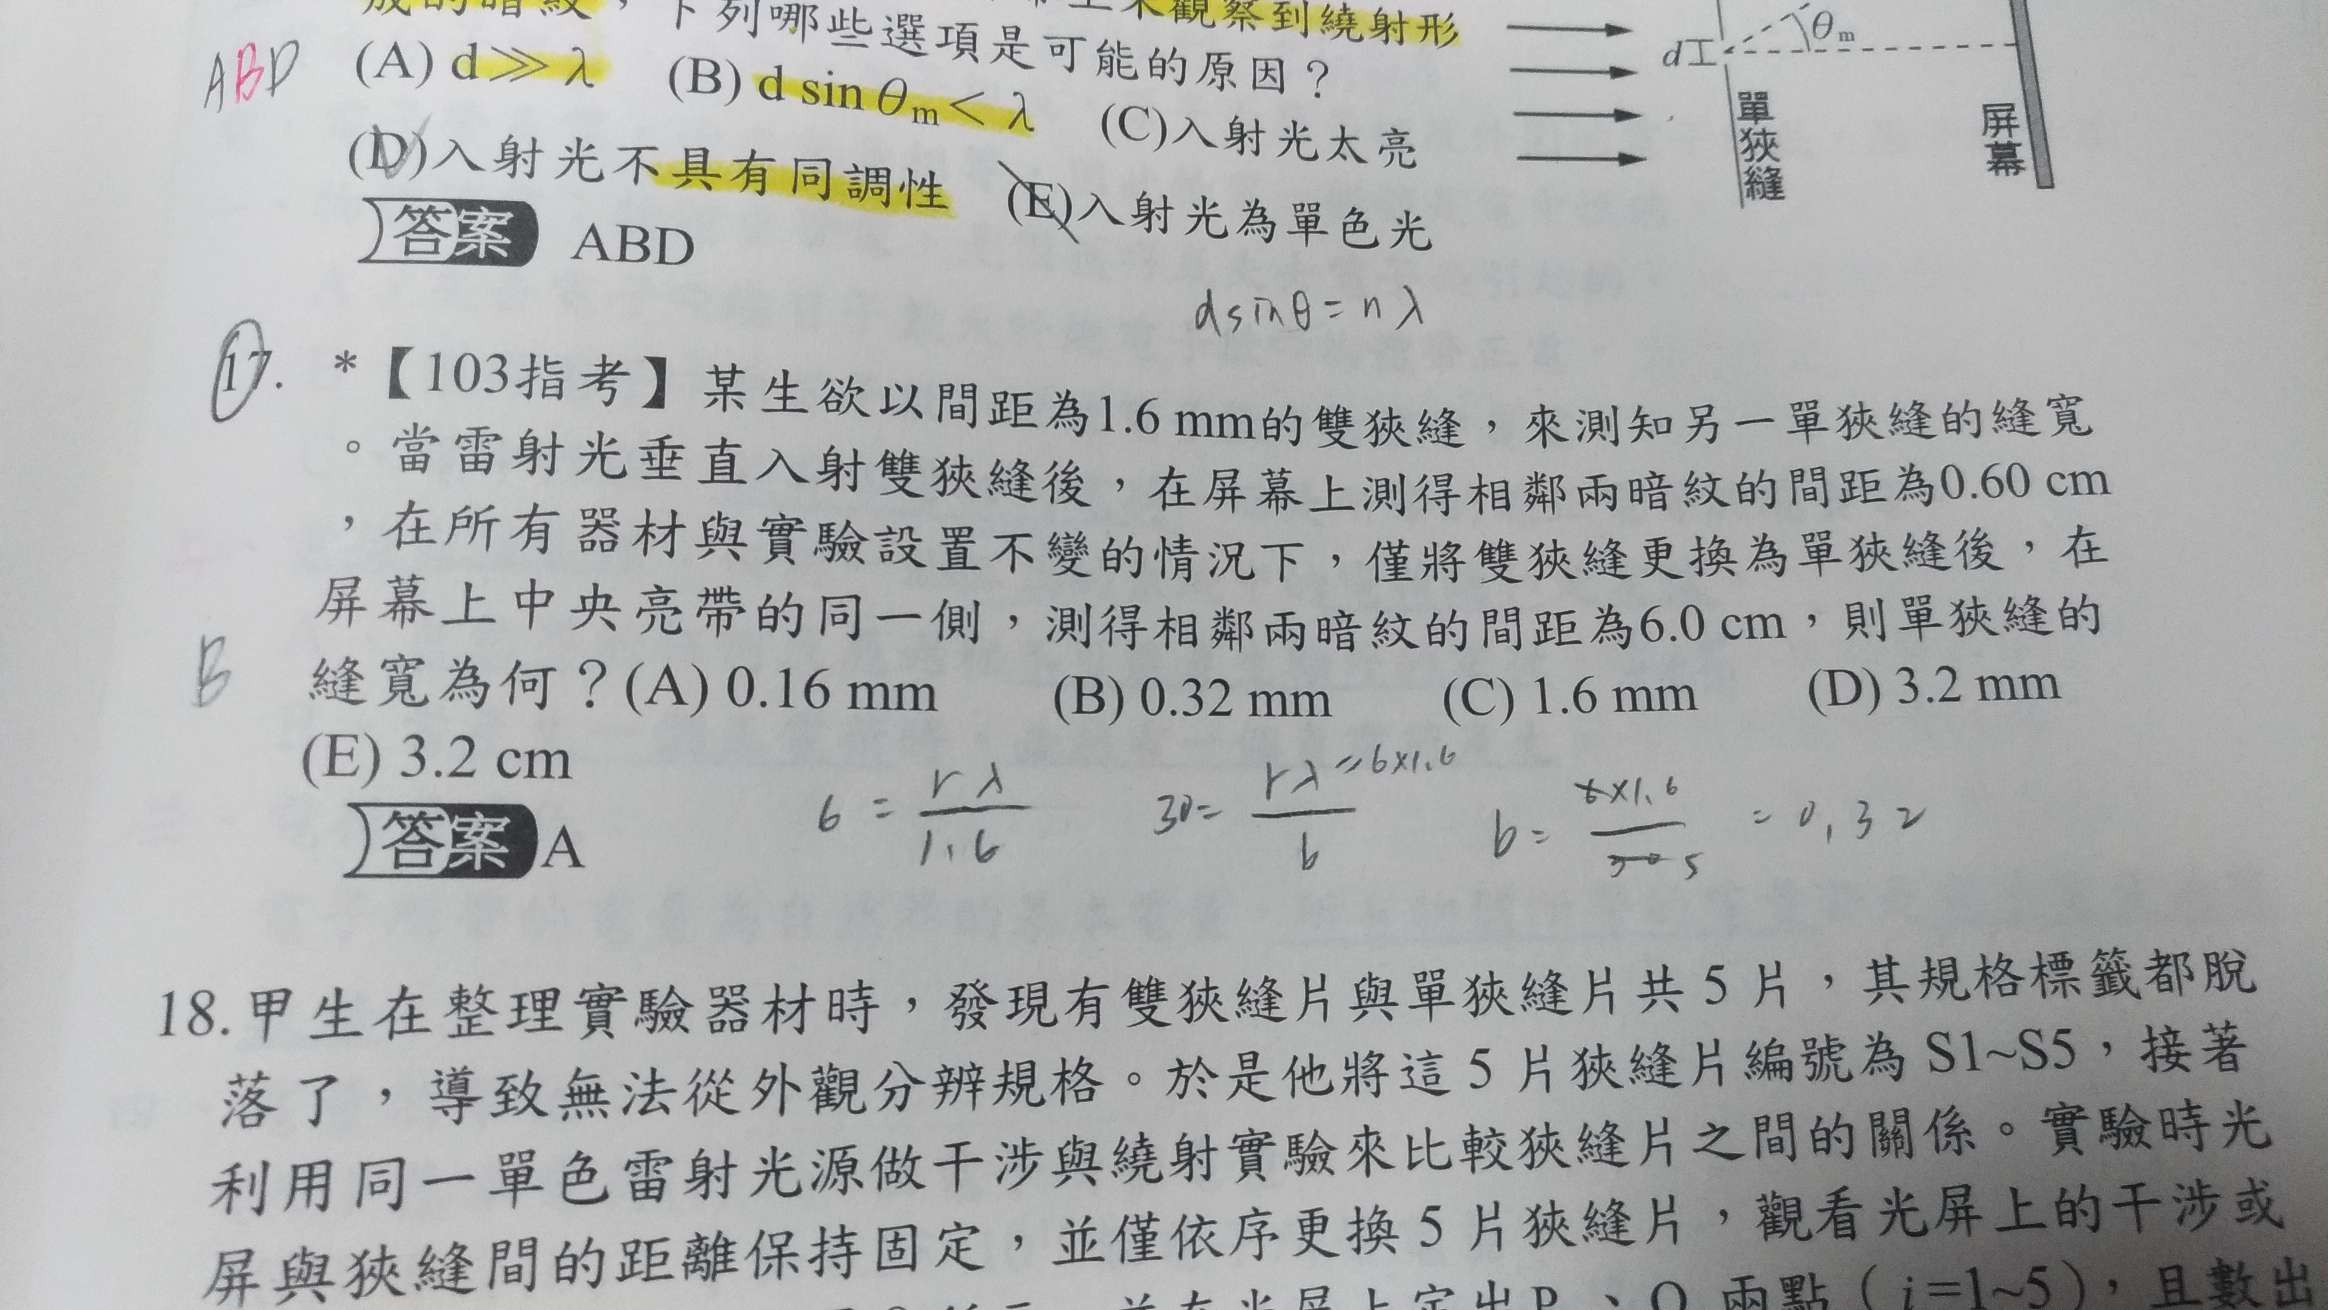 成的暗紋，下列哪些選項是可能的原因？
觀察到繞射形
ABD
(A) d≫λ (B) d sin θm＜λ (C)入射光太亮
(D)入射光不具有同調性 (E)入射光為單色光
答案 ABD
d
θm
單狹縫
屏幕
dsinθ=nλ
17. *【103指考】某生欲以間距為1.6 mm的雙狹縫，來測知另一單狹縫的縫寬
。當雷射光垂直入射雙狹縫後，在屏幕上測得相鄰兩暗紋的間距為0.60 cm
，在所有器材與實驗設置不變的情況下，僅將雙狹縫更換為單狹縫後，在
屏幕上中央亮帶的同一側，測得相鄰兩暗紋的間距為6.0 cm，則單狹縫的
B
縫寬為何？(A) 0.16 mm (B) 0.32 mm (C) 1.6 mm (D) 3.2 mm
(E) 3.2 cm
6 = rλ/1.6 30= rλ/b =6×1.6 b= 6×1.6/30 5 = 0.32
答案 A
18.甲生在整理實驗器材時，發現有雙狹縫片與單狹縫片共 5 片，其規格標籤都脫
落了，導致無法從外觀分辨規格。於是他將這 5 片狹縫片編號為 S1~S5，接著
利用同一單色雷射光源做干涉與繞射實驗來比較狹縫片之間的關係。實驗時光
屏與狹縫間的距離保持固定，並僅依序更換 5 片狹縫片，觀看光屏上的干涉或
兩點（i=1~5），且數出